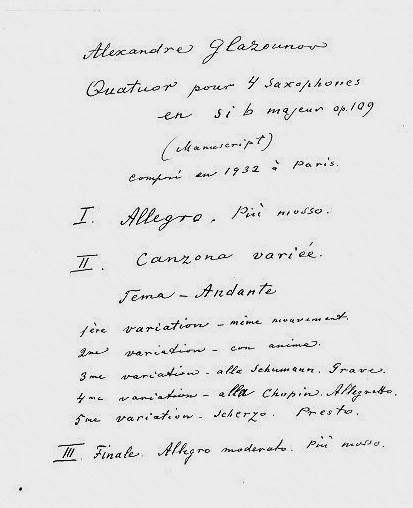 Alexandre Glazounov
Quatuor pour 4 Saxophones
en si b majeur op. 109
(Manuscript)
compri en 1932 à Paris.
I. Allegro. Più mosso.
II. Canzona variée.
Tema – Andante
1ère variation – même mouvement.
2me variation – con anima.
3me variation – alla Schumann. Grave.
4me variation – alla Chopin. Allegretto.
5me variation – Scherzo. Presto.
III. Finale. Allegro moderato. Più mosso.